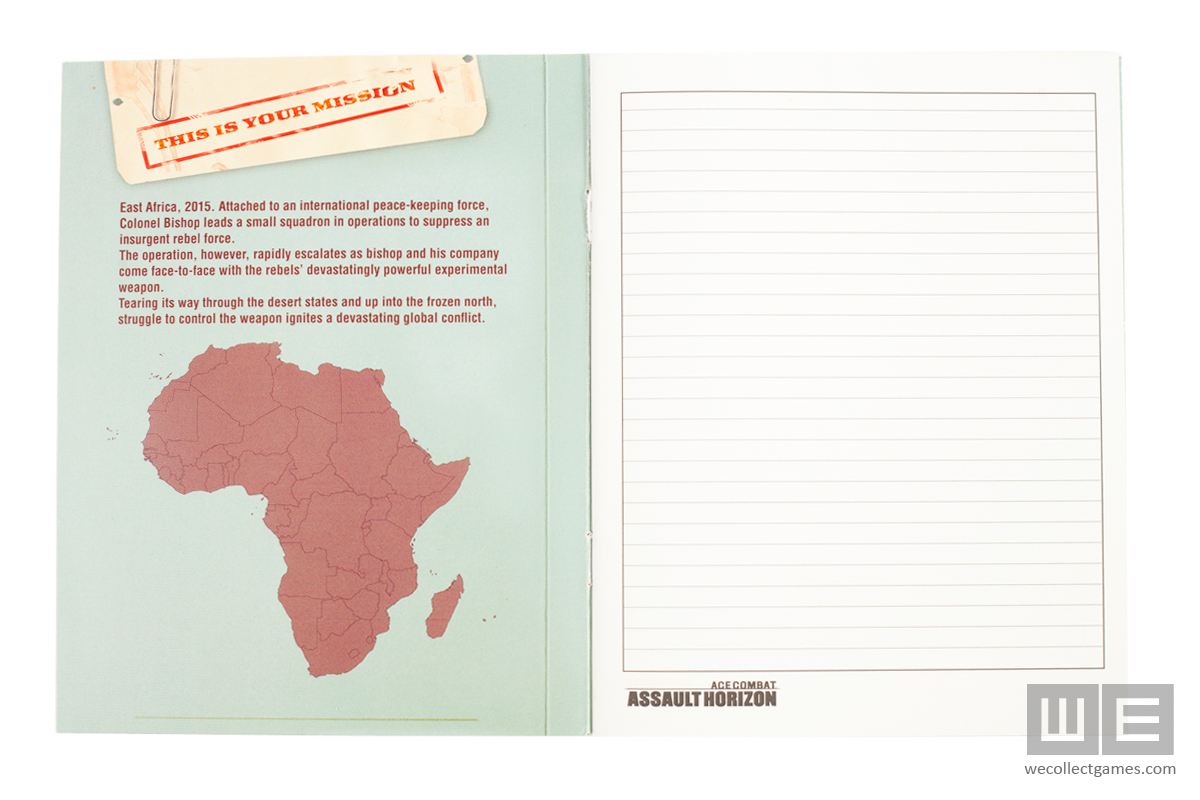 THIS IS YOUR MISSION
East Africa, 2015. Attached to an international peace-keeping force,
Colonel Bishop leads a small squadron in operations to suppress an
insurgent rebel force.
The operation, however, rapidly escalates as bishop and his company
come face-to-face with the rebels' devastatingly powerful experimental
weapon.
Tearing its way through the desert states and up into the frozen north,
struggle to control the weapon ignites a devastating global conflict.
ACE COMBAT
ASSAULT HORIZON
WE
wecollectgames.com